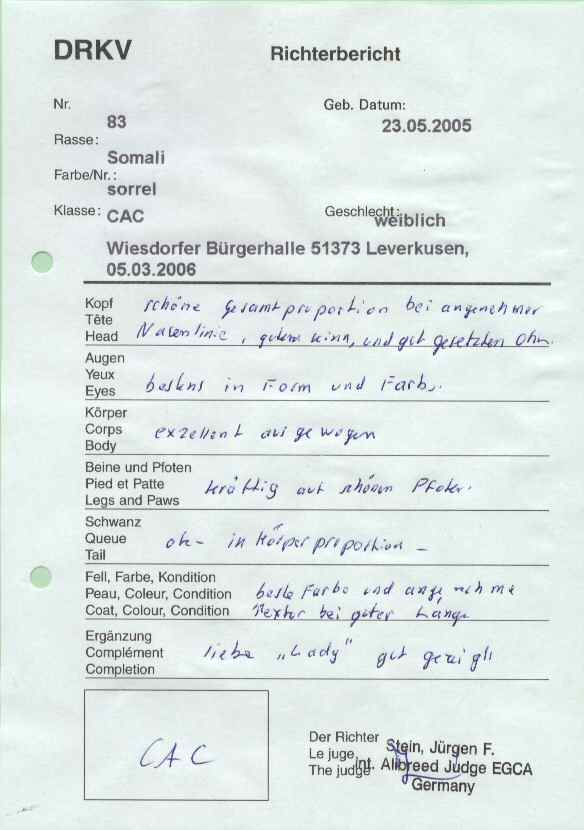 DRKV Richterbericht
Nr. Geb. Datum:
83 23.05.2005
Rasse:
Somali
Farbe/Nr.:
sorrel
Klasse: CAC Geschlecht: weiblich
Wiesdorfer Bürgerhalle 51373 Leverkusen,
05.03.2006
Kopf schöne Gesamtproportion bei angenehmer
Tête
Head Nasenlinie, gutem Kinn, und gut gesetzten Ohren.
Augen
Yeux
Eyes bestens in Form und Farbe.
Körper
Corps
Body exzellent ausgewogen
Beine und Pfoten
Pied et Patte kräftig auf schönen Pfoten.
Legs and Paws
Schwanz
Queue ok - in Körperproportion -
Tail
Fell, Farbe, Kondition
Peau, Coleur, Condition beste Farbe und angenehme
Coat, Colour, Condition Textur bei guter Länge
Ergänzung
Complément liebe „Lady" gut gezeigt
Completion
CAC
Der Richter Stein, Jürgen F.
Le juge Int. Allbreed Judge EGCA
The judge Germany